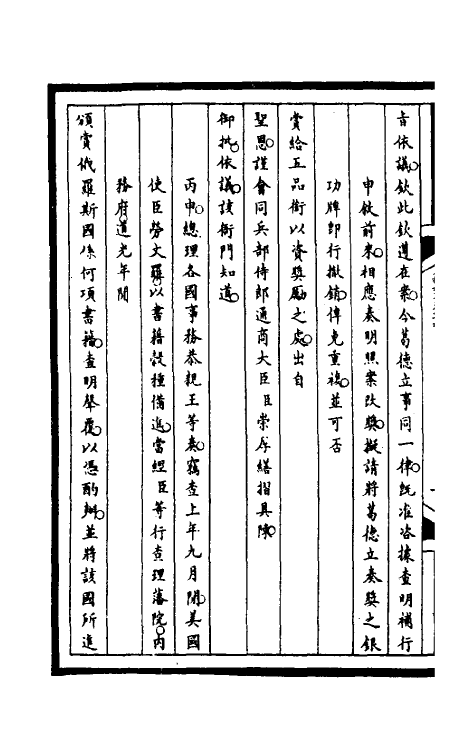 旨依議。欽此欽遵在案。今葛德立事同一律。既准咨據查明補行
申敘前來。相應奏明照案改獎。擬請將葛德立奏獎之銀
功牌即行撤銷。俾免重複。並可否
賞給五品銜以資獎勵之處。出自
聖恩。謹會同兵部侍郎通商大臣臣崇厚繕摺具陳。
御批。依議。該衙門知道。
丙申。總理各國事務恭親王等奏。竊查上年九月間。美國
使臣勞文羅。以書籍穀種備進。當經臣等行查理藩院。內
務府。道光年間
頒賞俄羅斯國係何項書籍。查明聲覆。以憑酌辦。並將該國所進